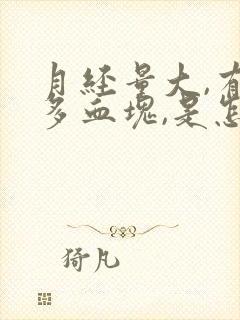 月经量大,有
多血块,是怎
猗凡